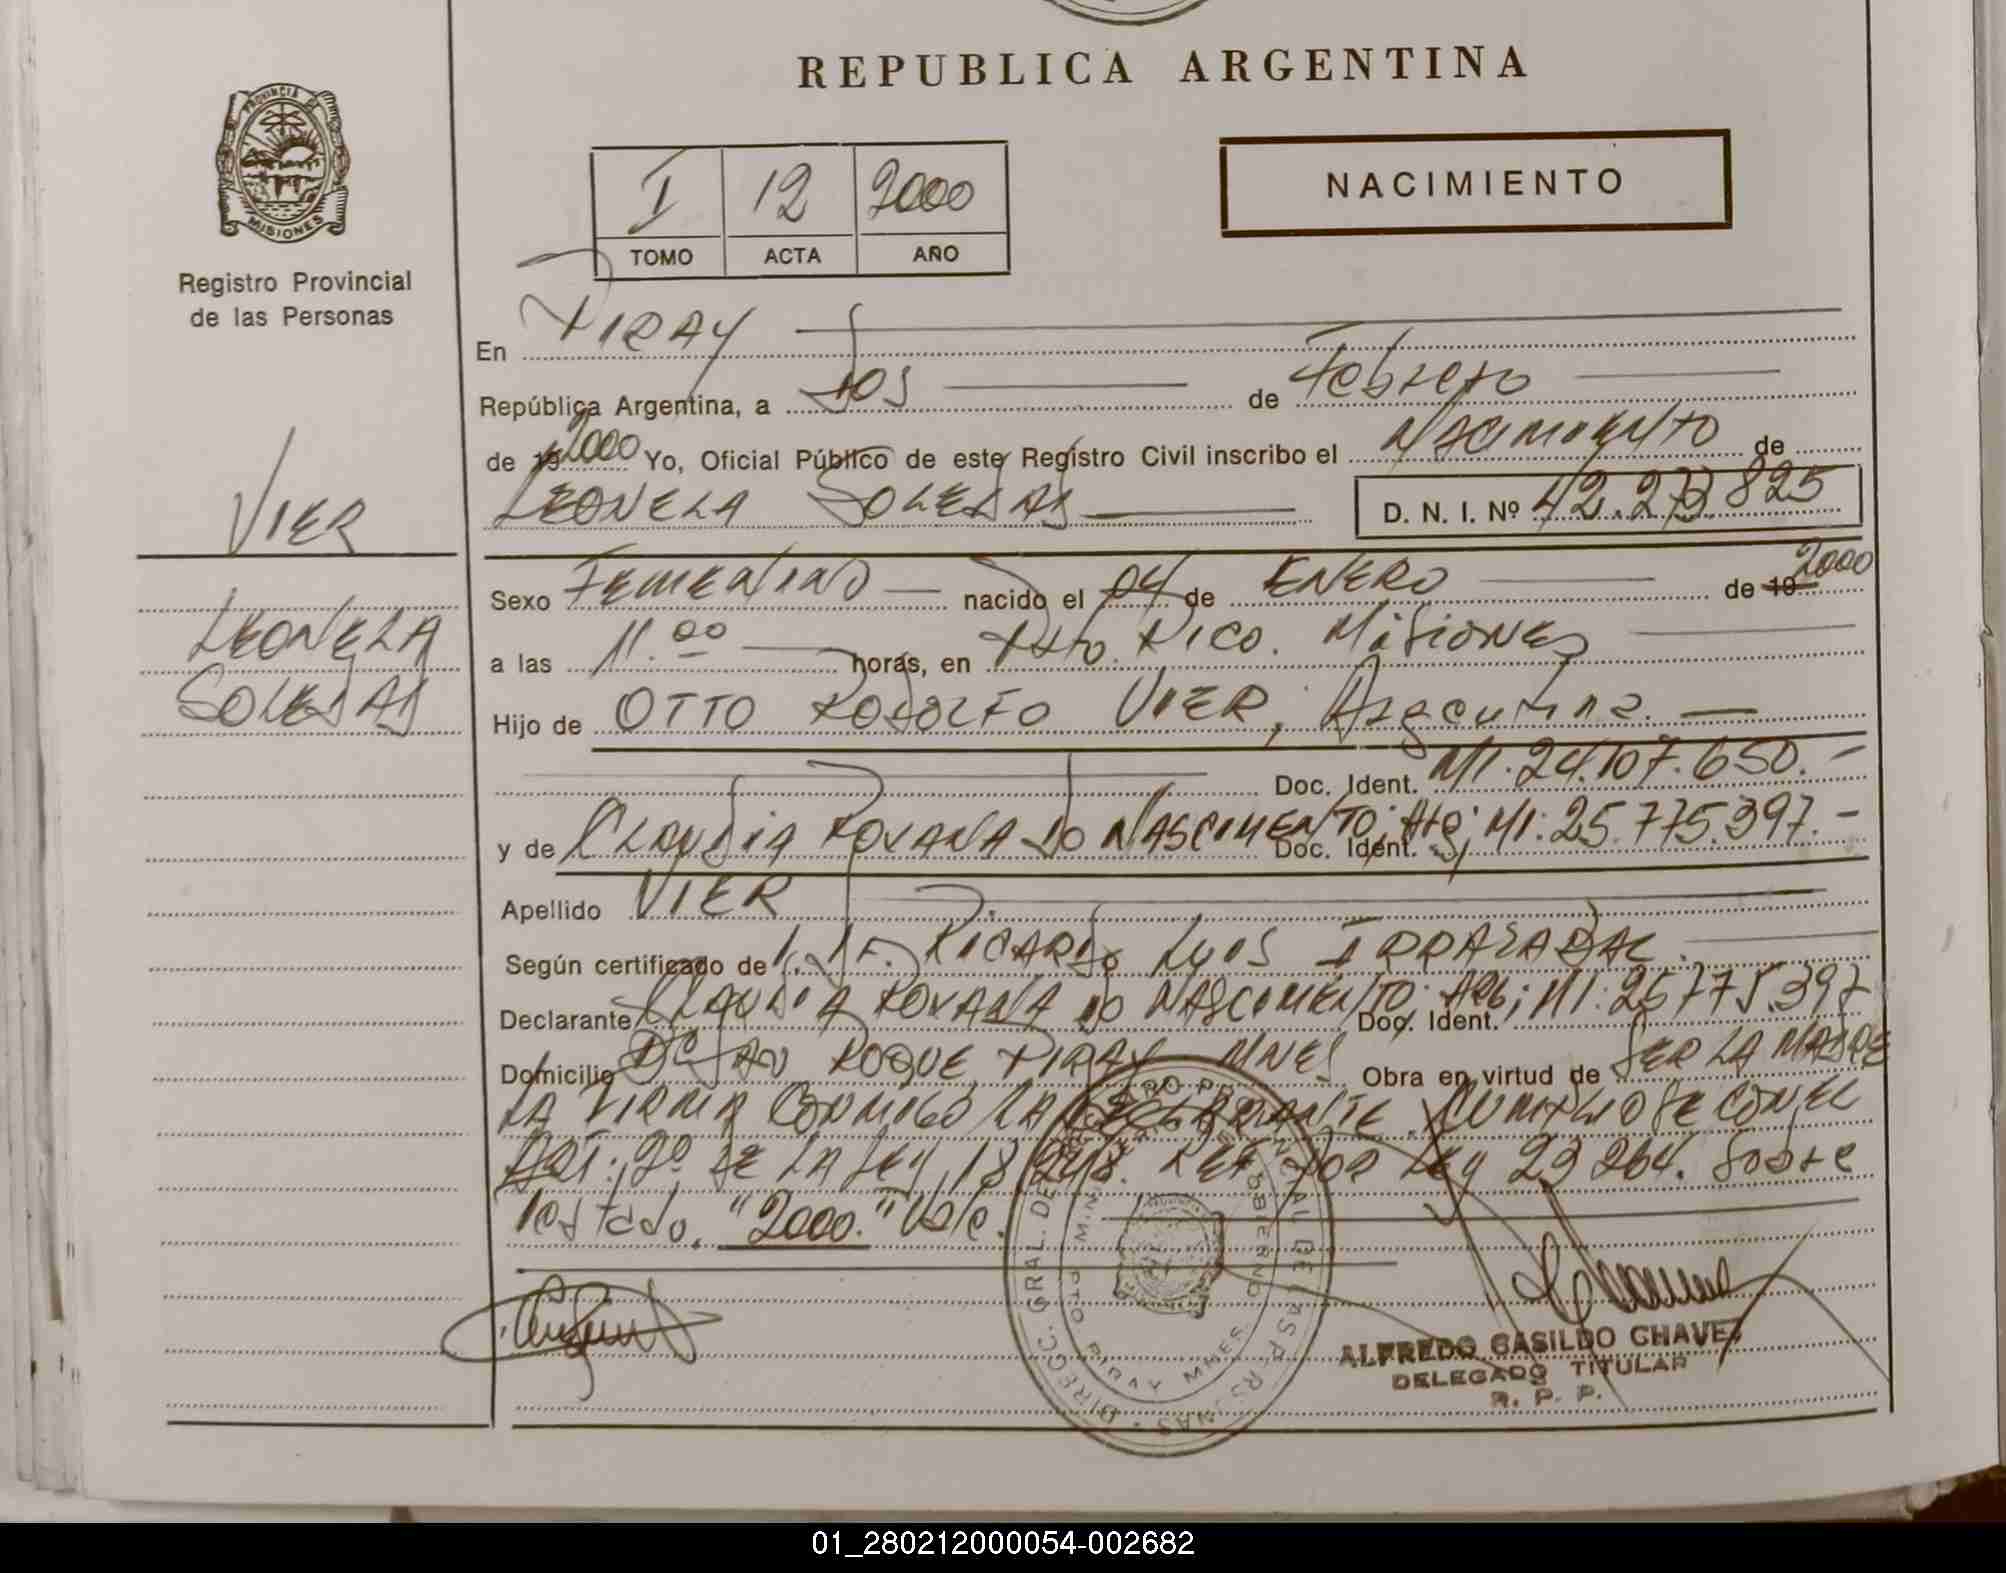 REPUBLICA ARGENTINA
PROVINCIA DE
MISIONES
Registro Provincial
de las Personas
I 12 2000
TOMO ACTA AÑO
NACIMIENTO
En PIRAY
República Argentina, a dos de Febrero
de 19 2000 Yo, Oficial Público de este Registro Civil inscribo el Nacimiento de
LEONELA SOLEDAD D. N. I. Nº 42.273.825
VIER
LEONELA
SOLEDAD
Sexo FEMENINO nacido el 04 de ENERO de 19 2000
a las 11.00 horas, en Pto. Rico. Misiones
Hijo de OTTO RODOLFO VIER, Argentina.
Doc. Ident. MI. 24.107.650.-
y de CLAUDIA ROXANA DO NASCIMENTO; Arg; Doc. Ident. MI: 25.775.397.-
Apellido VIER
Según certificado de RICARDO LUIS IRRAZABAL.
Declarante CLAUDIA ROXANA DO NASCIMENTO; ARG; Doc. Ident. MI: 25.775.397
Domicilio ROQUE PIRAY MNES Obra en virtud de SER LA MADRE
LA FIRMA CONMIGO LA DECLARANTE. CUMPLIOSE CON EL
ART: 2º DE LA LEY 18 248. REF POR Ley 23 264. Sobre
testado. "2000." Vale.
ALFREDO CASILDO CHAVEZ
DELEGADO TITULAR
R. P. P.
01_280212000054-002682